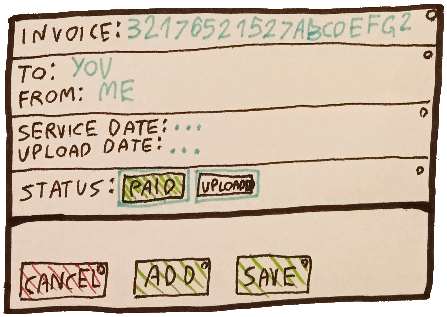 INVOICE: 32176521527ABCDEFG2
TO: YOU
FROM: ME
SERVICE DATE: ...
UPLOAD DATE: ...
STATUS: PAID UPLOAD
CANCEL ADD SAVE